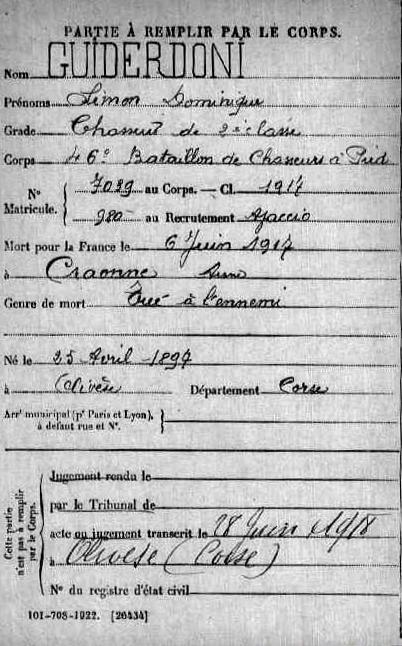 PARTIE À REMPLIR PAR LE CORPS.
Nom GUIDERDONI
Prénoms Simon Dominique
Grade Chasseur de 2e classe
Corps 46e Bataillon de Chasseurs à Pied
No Matricule. { 7029 au Corps. — Cl. 1917
980 au Recrutement Ajaccio
Mort pour la France le 6 Juin 1917
à Craonne Aisne
Genre de mort Tué à l'ennemi
Né le 25 Avril 1897
à Olivèse Département Corse
Arrt municipal (pr Paris et Lyon), à défaut rue et No.
Cette partie n'est pas à remplir par le Corps.
Jugement rendu le
par le Tribunal de
acte ou jugement transcrit le 28 Juin 1918
à Olivese (Corse)
No du registre d'état civil
101-708-1922. [26434]